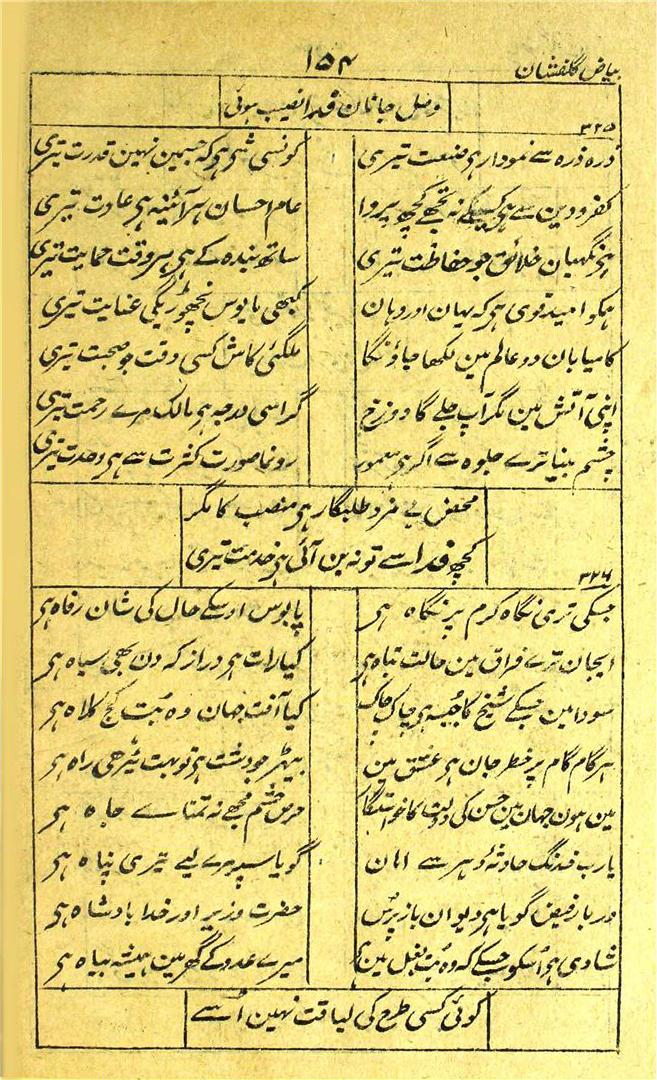 بیاض گلفشان
۱۵۴
وصل جانان فدا نصیب ہوئی
۳۲۵
ذرہ ذرہ سے نمودار ہی صنعت تیری
کونسی شی ہی کہ جسمین نہین قدرت تیری
کفر و دین سے ہی کسیکے نہ تجھے کچھ پروا
عام احسان ہر آئینہ ہی عادت تیری
ہی نگہبان خلائق جو حفاظت تیری
ساتھ بندہ کے ہی ہر وقت حمایت تیری
ہمکو امید قوی ہی کہ یہان اور وہان
کبھی مایوس نچھوڑیگی عنایت تیری
کامیابان دو عالم مین لکھا جاؤنگا
ملگئی کاش کسی وقت جو صحبت تیری
اپنی آتش مین مگر آپ جلے گا دوزخ
گر اسی درجہ ہی مالک مرے رحمت تیری
چشم بینا ترے جلوہ سے اگر ہی معمور
رونما صورت کثرت سے ہی وحدت تیری
محض بے مزد طلبگار ہی منصب کا مگر
کچھ فدا سے تو نہ بن آئی ہی خدمت تیری
۳۲۶
جسکی تری نگاہ کرم پر نگاہ ہی
پابوس اوسکے حال کی شان رفاہ ہی
ایجان ترے فراق مین حالت تباہ ہی
کیا رات ہی دراز کہ دن بھی سیاہ ہی
سودا مین جسکے شیخ کا جبہ ہی چاک چاک
کیا آفت جہان وہ بت کج کلاہ ہی
ہر گام گام پر خطر جان ہی عشق مین
بیہڑ جو دشت ہی تو بہت ٹیڑھی راہ ہی
مین ہون جہان مین حسن کی دولت کا خواستگا
حرص حشم مجھے نہ تمناے جاہ ہی
یارب خدنگ حادثۂ دہر سے امان
گویا سپر مرے لیے تیری پناہ ہی
دربار فیض گویا ہی دیوان باز پرس
حضرت وزیر اور خدا بادشاہ ہی
شادی ہی اُسکو جسکے کہ وہ بت بغل مین ہی
میرے عدو کے گھر مین ہمیشہ بیاہ ہی
کوئی کسی طرح کی لیاقت نہین اُسے